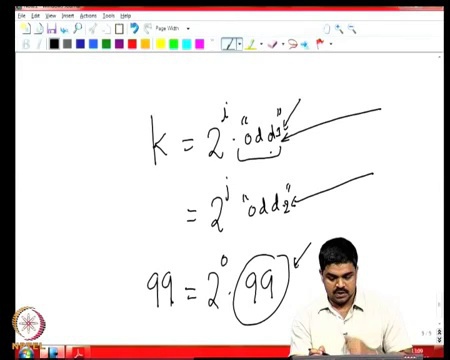 File Edit View Insert Actions Tools Help
Page Width
k = 2^i · "odd1"
= 2^j "odd2"
99 = 2^0 · 99